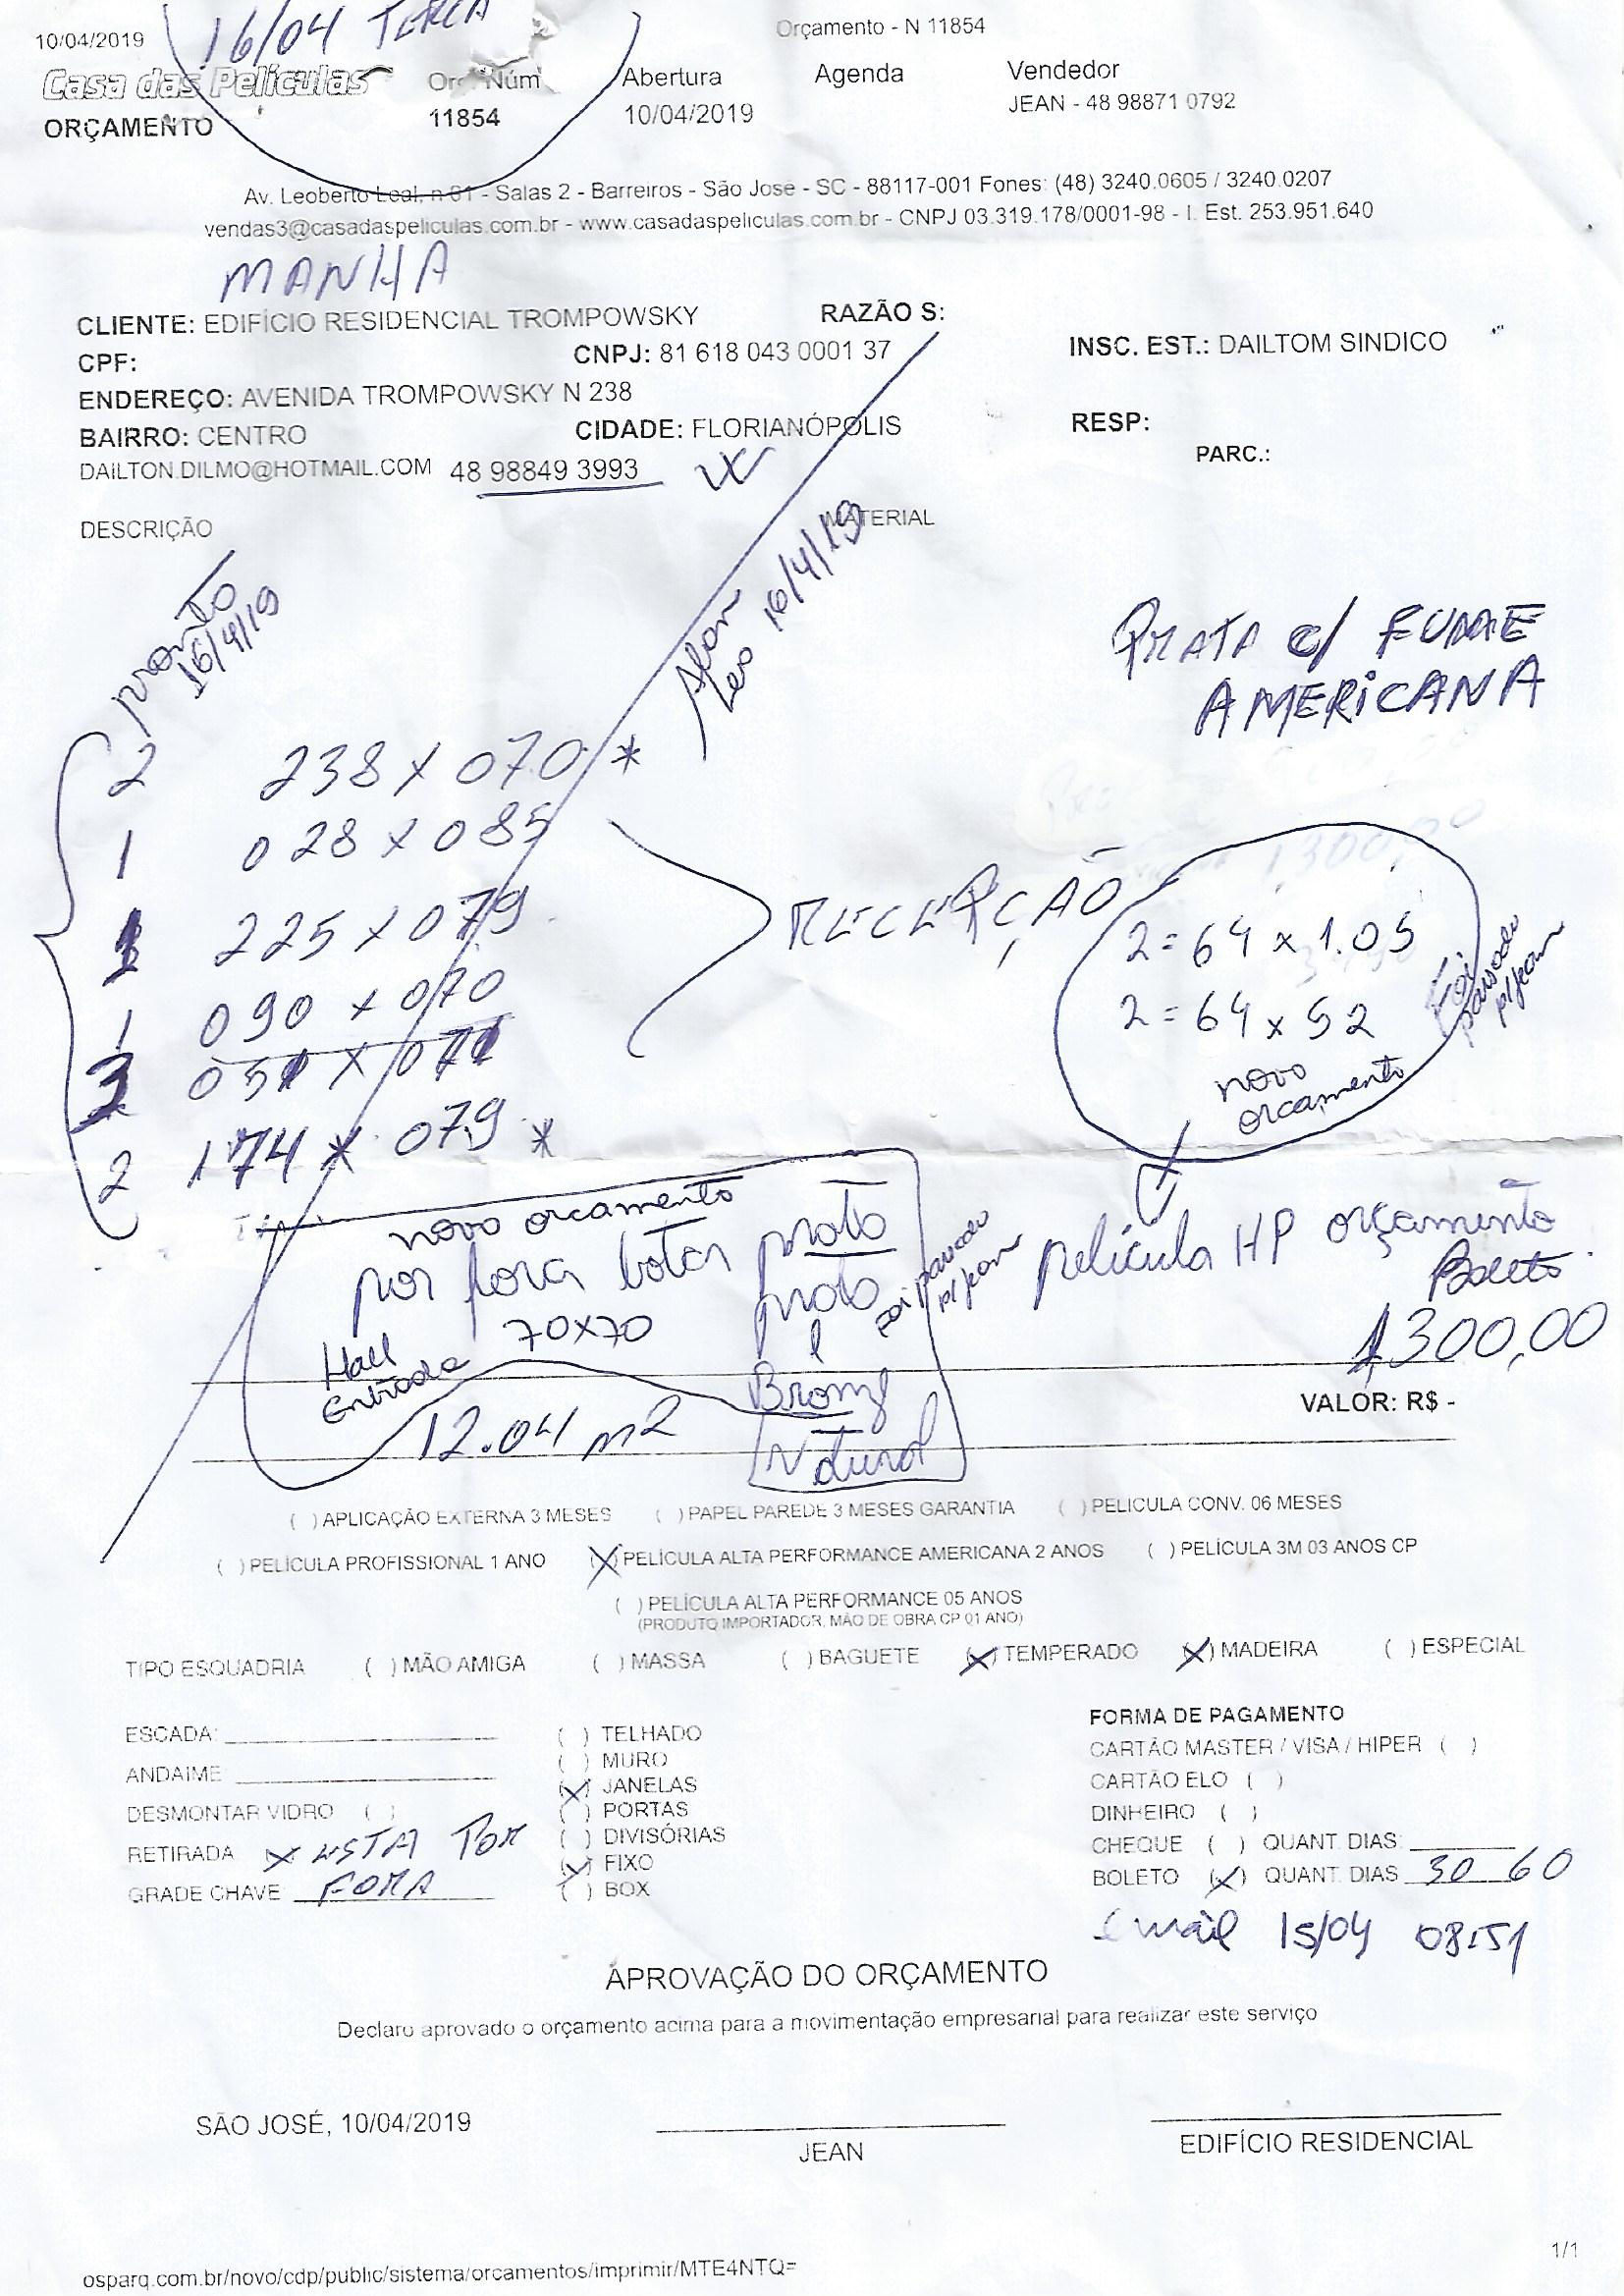 10/04/2019
Orçamento - N 11854
16/04 TERCA
Casa das Películas
ORÇAMENTO
Orç Núm
11854
Abertura
10/04/2019
Agenda
Vendedor
JEAN - 48 98871 0792
Av. Leoberto Leal, n 61 - Salas 2 - Barreiros - São José - SC - 88117-001 Fones: (48) 3240.0605 / 3240.0207
vendas3@casadaspeliculas.com.br - www.casadaspeliculas.com.br - CNPJ 03.319.178/0001-98 - I. Est. 253.951.640
MANHA
CLIENTE: EDIFÍCIO RESIDENCIAL TROMPOWSKY
RAZÃO S:
CPF:
CNPJ: 81 618 043 0001 37
INSC. EST.: DAILTOM SINDICO
ENDEREÇO: AVENIDA TROMPOWSKY N 238
BAIRRO: CENTRO
CIDADE: FLORIANÓPOLIS
RESP:
DAILTON.DILMO@HOTMAIL.COM 48 98849 3993
PARC.:
DESCRIÇÃO
MATERIAL
pronto
16/4/19
Leo 16/4/19
PRATA c/ FUME
AMERICANA
2 238 x 070 *
1 028 x 085
1 225 x 079
1 090 x 070
3 051 x 071
2 174 x 079 *
RECEPÇÃO
2 = 64 x 1.05
2 = 64 x 52
novo
orcamento
Foi
passado
p/ Jean
novo orcamento
por fora botar prata
prata
e
Bronze
Natural
70x70
Hall
Entrada
foi passado
p/ Jean
película HP orçamento
Boleto
1,300,00
12.04 m2
VALOR: R$ -
( ) APLICAÇÃO EXTERNA 3 MESES ( ) PAPEL PAREDE 3 MESES GARANTIA ( ) PELICULA CONV. 06 MESES
( ) PELÍCULA PROFISSIONAL 1 ANO (X) PELÍCULA ALTA PERFORMANCE AMERICANA 2 ANOS ( ) PELÍCULA 3M 03 ANOS CP
( ) PELÍCULA ALTA PERFORMANCE 05 ANOS
(PRODUTO IMPORTADOR, MÃO DE OBRA CP 01 ANO)
TIPO ESQUADRIA ( ) MÃO AMIGA ( ) MASSA ( ) BAGUETE (X) TEMPERADO (X) MADEIRA ( ) ESPECIAL
ESCADA:
ANDAIME:
DESMONTAR VIDRO ( )
RETIRADA X ESTA POR
GRADE CHAVE: FORA
( ) TELHADO
( ) MURO
(X) JANELAS
( ) PORTAS
( ) DIVISÓRIAS
(X) FIXO
( ) BOX
FORMA DE PAGAMENTO
CARTÃO MASTER / VISA / HIPER ( )
CARTÃO ELO ( )
DINHEIRO ( )
CHEQUE ( ) QUANT. DIAS:
BOLETO (X) QUANT. DIAS 30 60
email 15/04 08:51
APROVAÇÃO DO ORÇAMENTO
Declaro aprovado o orçamento acima para a movimentação empresarial para realizar este serviço
SÃO JOSÉ, 10/04/2019
JEAN
EDIFÍCIO RESIDENCIAL
osparq.com.br/novo/cdp/public/sistema/orcamentos/imprimir/MTE4NTQ=
1/1